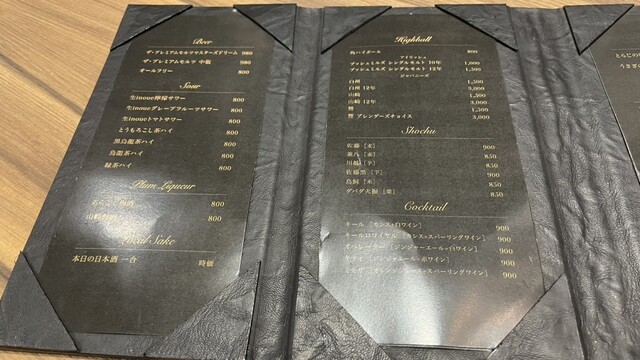 Beer
ザ・プレミアムモルツマスターズドリーム 980
ザ・プレミアムモルツ 中瓶 980
オールフリー 800
Sour
生inoue檸檬サワー 800
生inoueグレープフルーツサワー 800
生inoueトマトサワー 800
とうもろこし茶ハイ 800
黒烏龍茶ハイ 800
烏龍茶ハイ 800
緑茶ハイ 800
Plum Liqueur
あらごし梅酒 800
山崎 800
Local Sake
本日の日本酒 一合 時価
Highball
角ハイボール 800
アイリッシュ
ブッシュミルズ シングルモルト 10年 1,000
ブッシュミルズ シングルモルト 12年 1,500
ジャパニーズ
白州 1,500
白州 12年 3,000
山崎 1,500
山崎 12年 3,000
響 1,500
響 ブレンダーズチョイス 3,000
Shochu
佐藤 [麦] 900
兼八 [麦] 850
川越 [芋] 850
佐藤黒 [芋] 900
鳥飼 [米] 850
ダバダ火振 [栗] 850
Cocktail
キール [カシス×白ワイン] 900
キールロワイヤル [カシス×スパークリングワイン] 900
オペレーター [ジンジャーエール×白ワイン] 900
キティ [ジンジャエール×赤ワイン] 900
ミモザ [オレンジジュース×スパークリングワイン] 900
とらじの
うさぎの